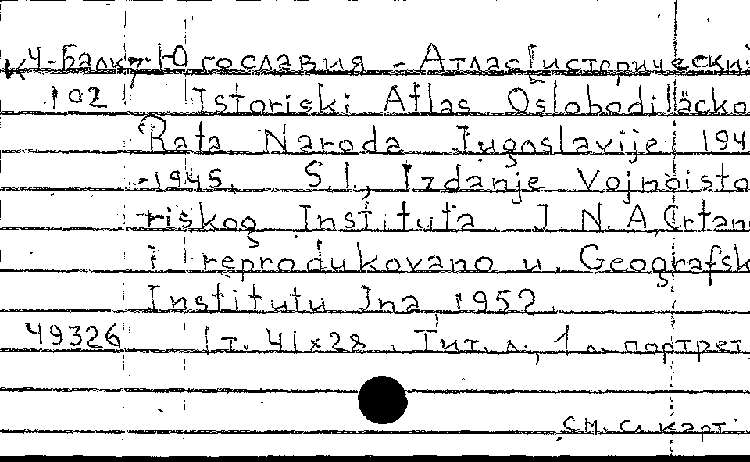 К4-Балк. Югославия - Атлас [исторический
102 Istoriski Atlas Oslobodilačko
Rata Naroda Jugoslavije 194
-1945. S.l., Izdanje Vojnoisto
riskog Instituta J N. A, Crtano
i reprodukovano u. Geografsk
Institutu Jna, 1952.
49326 1 т. 41x28. Тит. л., 1 л. портрет,
См. сл. карт.